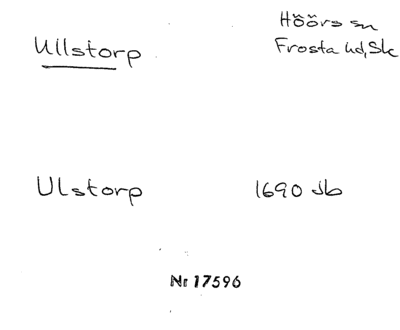 Ullstorp
Höörs sn
Frosta hd, Sk
Ulstorp 1690 Jb
Nr 17596